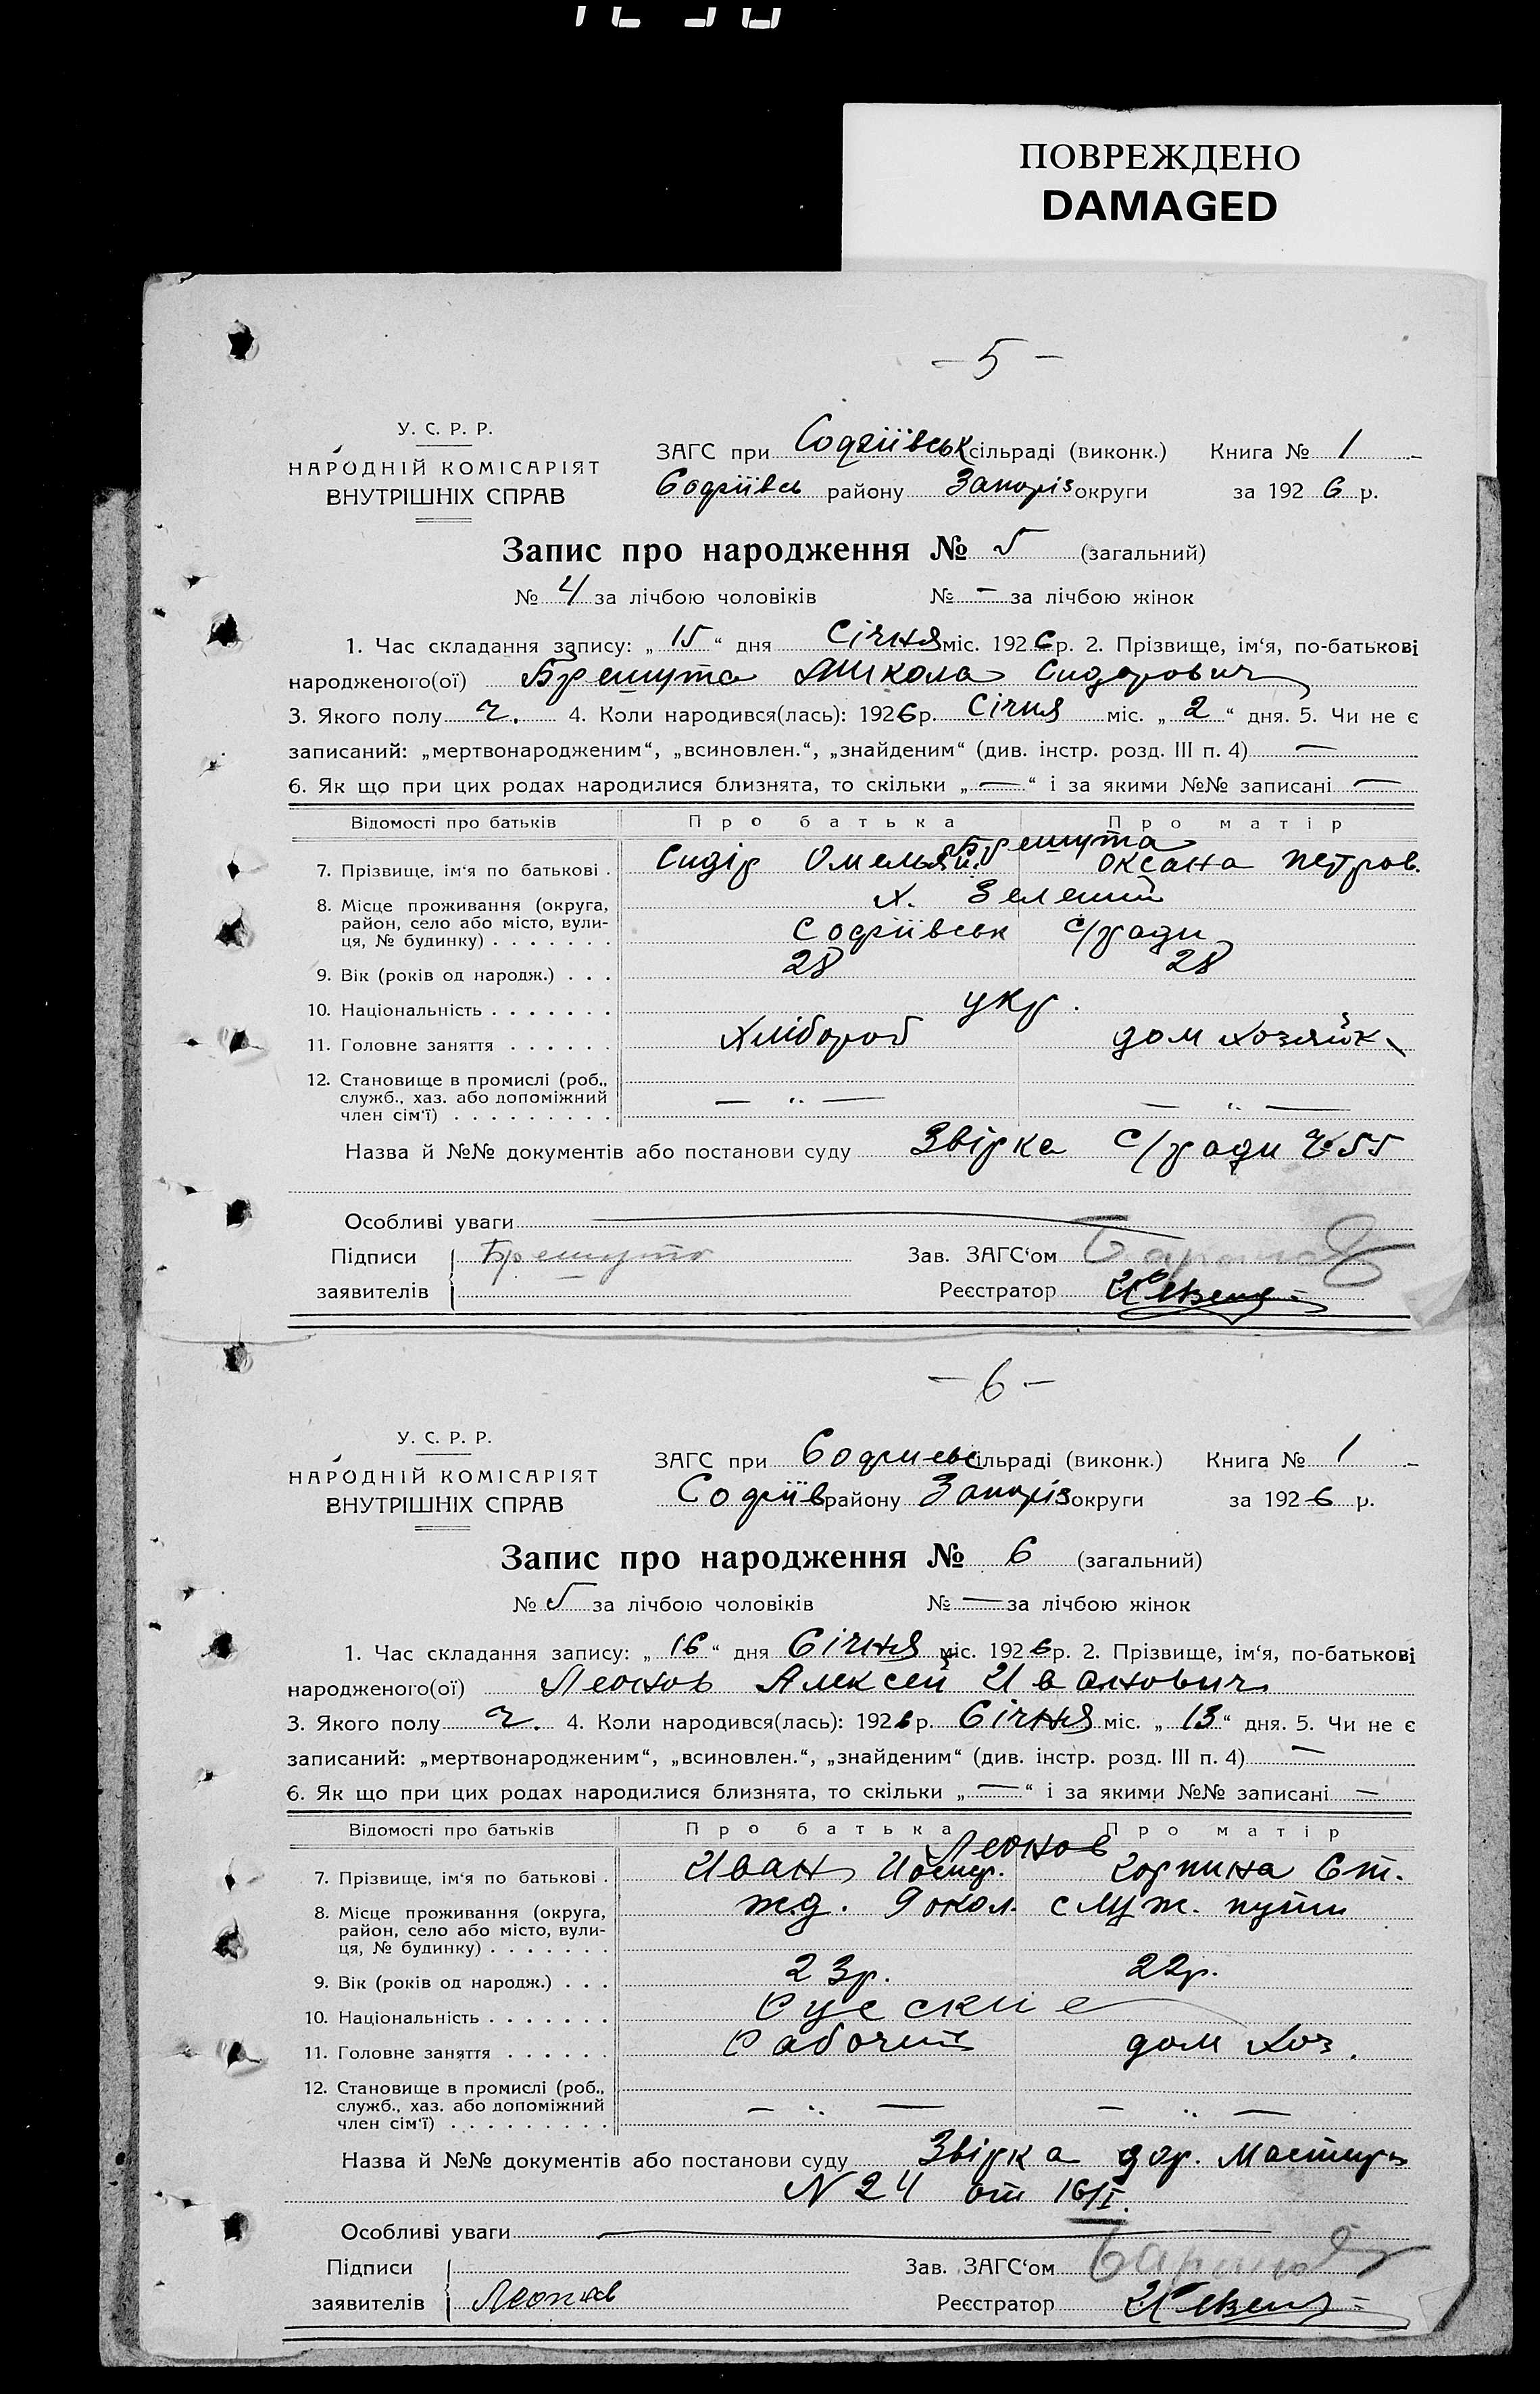 ПОВРЕЖДЕНО
DAMAGED
– 5 –
У. С. Р. Р.
НАРОДНІЙ КОМІСАРІЯТ
ВНУТРІШНІХ СПРАВ
ЗАГС при Софіївськ сільраді (виконк.) Книга № 1
Софіївсь району Запоріз округи за 1926 р.
Запис про народження № 5 (загальний)
№ 4 за лічбою чоловіків № – за лічбою жінок
1. Час складання запису: „ 15 “ дня Січня міс. 1926 р. 2. Прізвище, ім‘я, по-батькові
народженого(ої) Брешута Микола Сидорович
3. Якого полу ч. 4. Коли народився(лась): 1926 р. Січня міс. „ 2 “ дня. 5. Чи не є
записаний: „мертвонародженим“, „всиновлен.“, „знайденим“ (див. інстр. розд. III п. 4) —
6. Як що при цих родах народилися близнята, то скільки „ — “ і за якими №№ записані —
Відомості про батьків Про батька Про матір
Брешута
7. Прізвище, ім‘я по батькові . Сидір Омельян. Оксана Петров.
8. Місце проживання (округа, х. Зелений
район, село або місто, вули-
ця, № будинку) . . . . . . . Софіївськ с/ради
9. Вік (років од народж.) . . . 28 28
10. Національність . . . . . . . укр.
11. Головне заняття . . . . . . Хлібороб дом хозяйк
12. Становище в промислі (роб.,
служб., хаз. або допоміжний — „ — — „ —
член сім‘ї) . . . . . . . . .
Назва й №№ документів або постанови суду Звірка с/ради ч 55
Особливі уваги
Підписи Брешута Зав. ЗАГС‘ом
заявителів Реєстратор
– 6 –
У. С. Р. Р.
НАРОДНІЙ КОМІСАРІЯТ
ВНУТРІШНІХ СПРАВ
ЗАГС при сільраді (виконк.) Книга № 1
Софіїв району Запоріз округи за 1926 р.
Запис про народження № 6 (загальний)
№ 5 за лічбою чоловіків № — за лічбою жінок
1. Час складання запису: „ 16 “ дня Січня міс. 1926 р. 2. Прізвище, ім‘я, по-батькові
народженого(ої) Леонов Алексей Иванович
3. Якого полу ч. 4. Коли народився(лась): 1926 р. Січня міс. „ 13 “ дня. 5. Чи не є
записаний: „мертвонародженим“, „всиновлен.“, „знайденим“ (див. інстр. розд. III п. 4) —
6. Як що при цих родах народилися близнята, то скільки „ — “ і за якими №№ записані —
Відомості про батьків Про батька Про матір
Леонов
7. Прізвище, ім‘я по батькові . Иван Ст.
8. Місце проживання (округа, жд. 9 окол. служ. пути
район, село або місто, вули-
ця, № будинку) . . . . . . .
9. Вік (років од народж.) . . . 23р. 22р.
10. Національність . . . . . . . Русские
11. Головне заняття . . . . . . Рабочий дом хоз.
12. Становище в промислі (роб.,
служб., хаз. або допоміжний — „ — — „ —
член сім‘ї) . . . . . . . . .
Назва й №№ документів або постанови суду Звірка дор. Мастира
N 24 от 16/I.
Особливі уваги
Підписи Зав. ЗАГС‘ом
заявителів Леонов Реєстратор